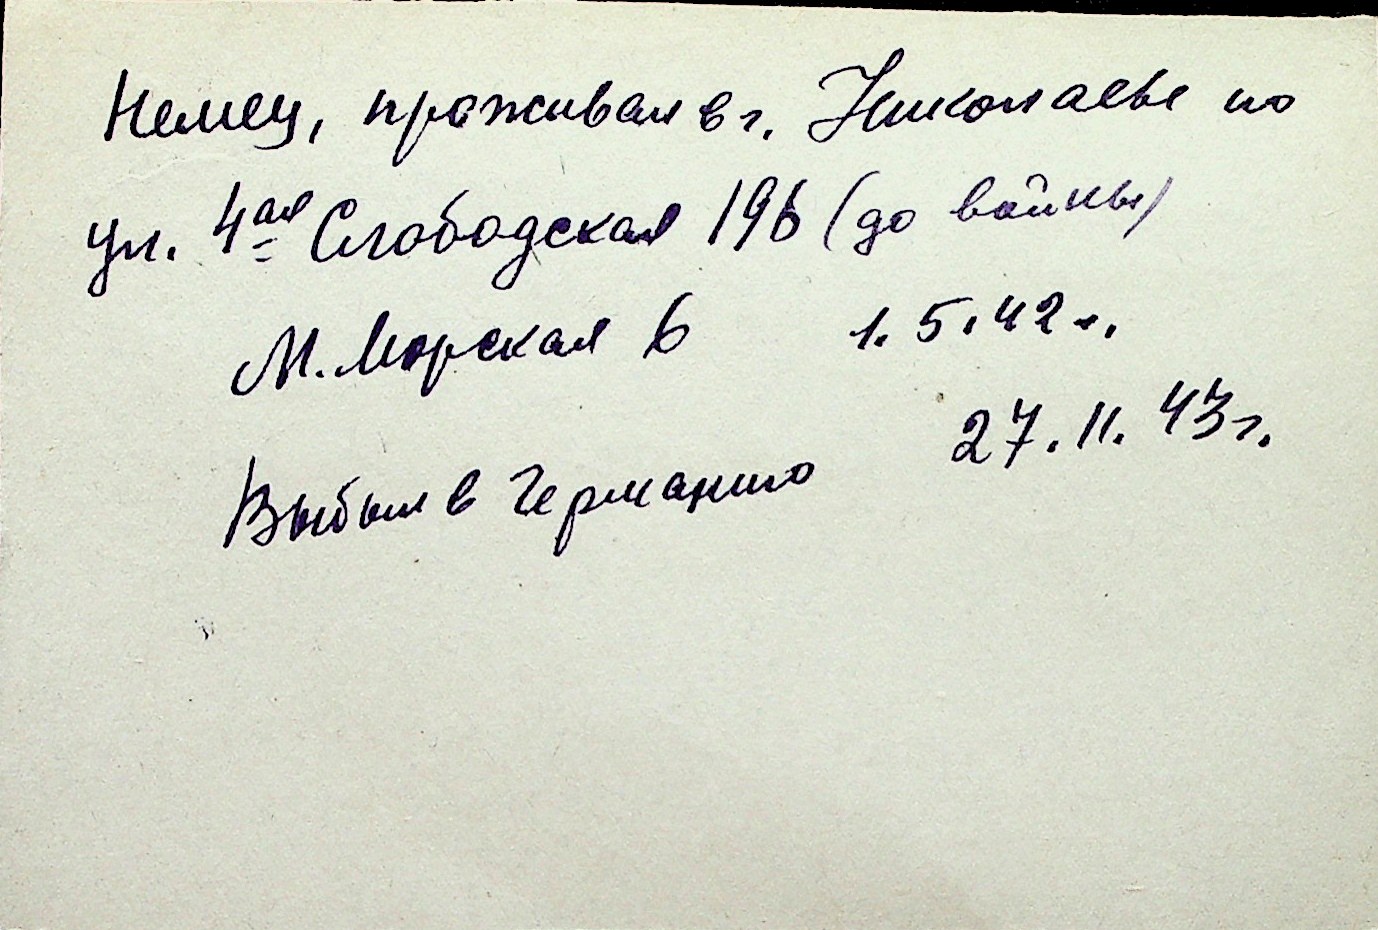 Немец, проживал в г. Николаеве по
ул. 4ая Слободская 196 (до войны)
М. Морская 6 1.5.42 г.
27.11.43 г.
Выбыл в Германию